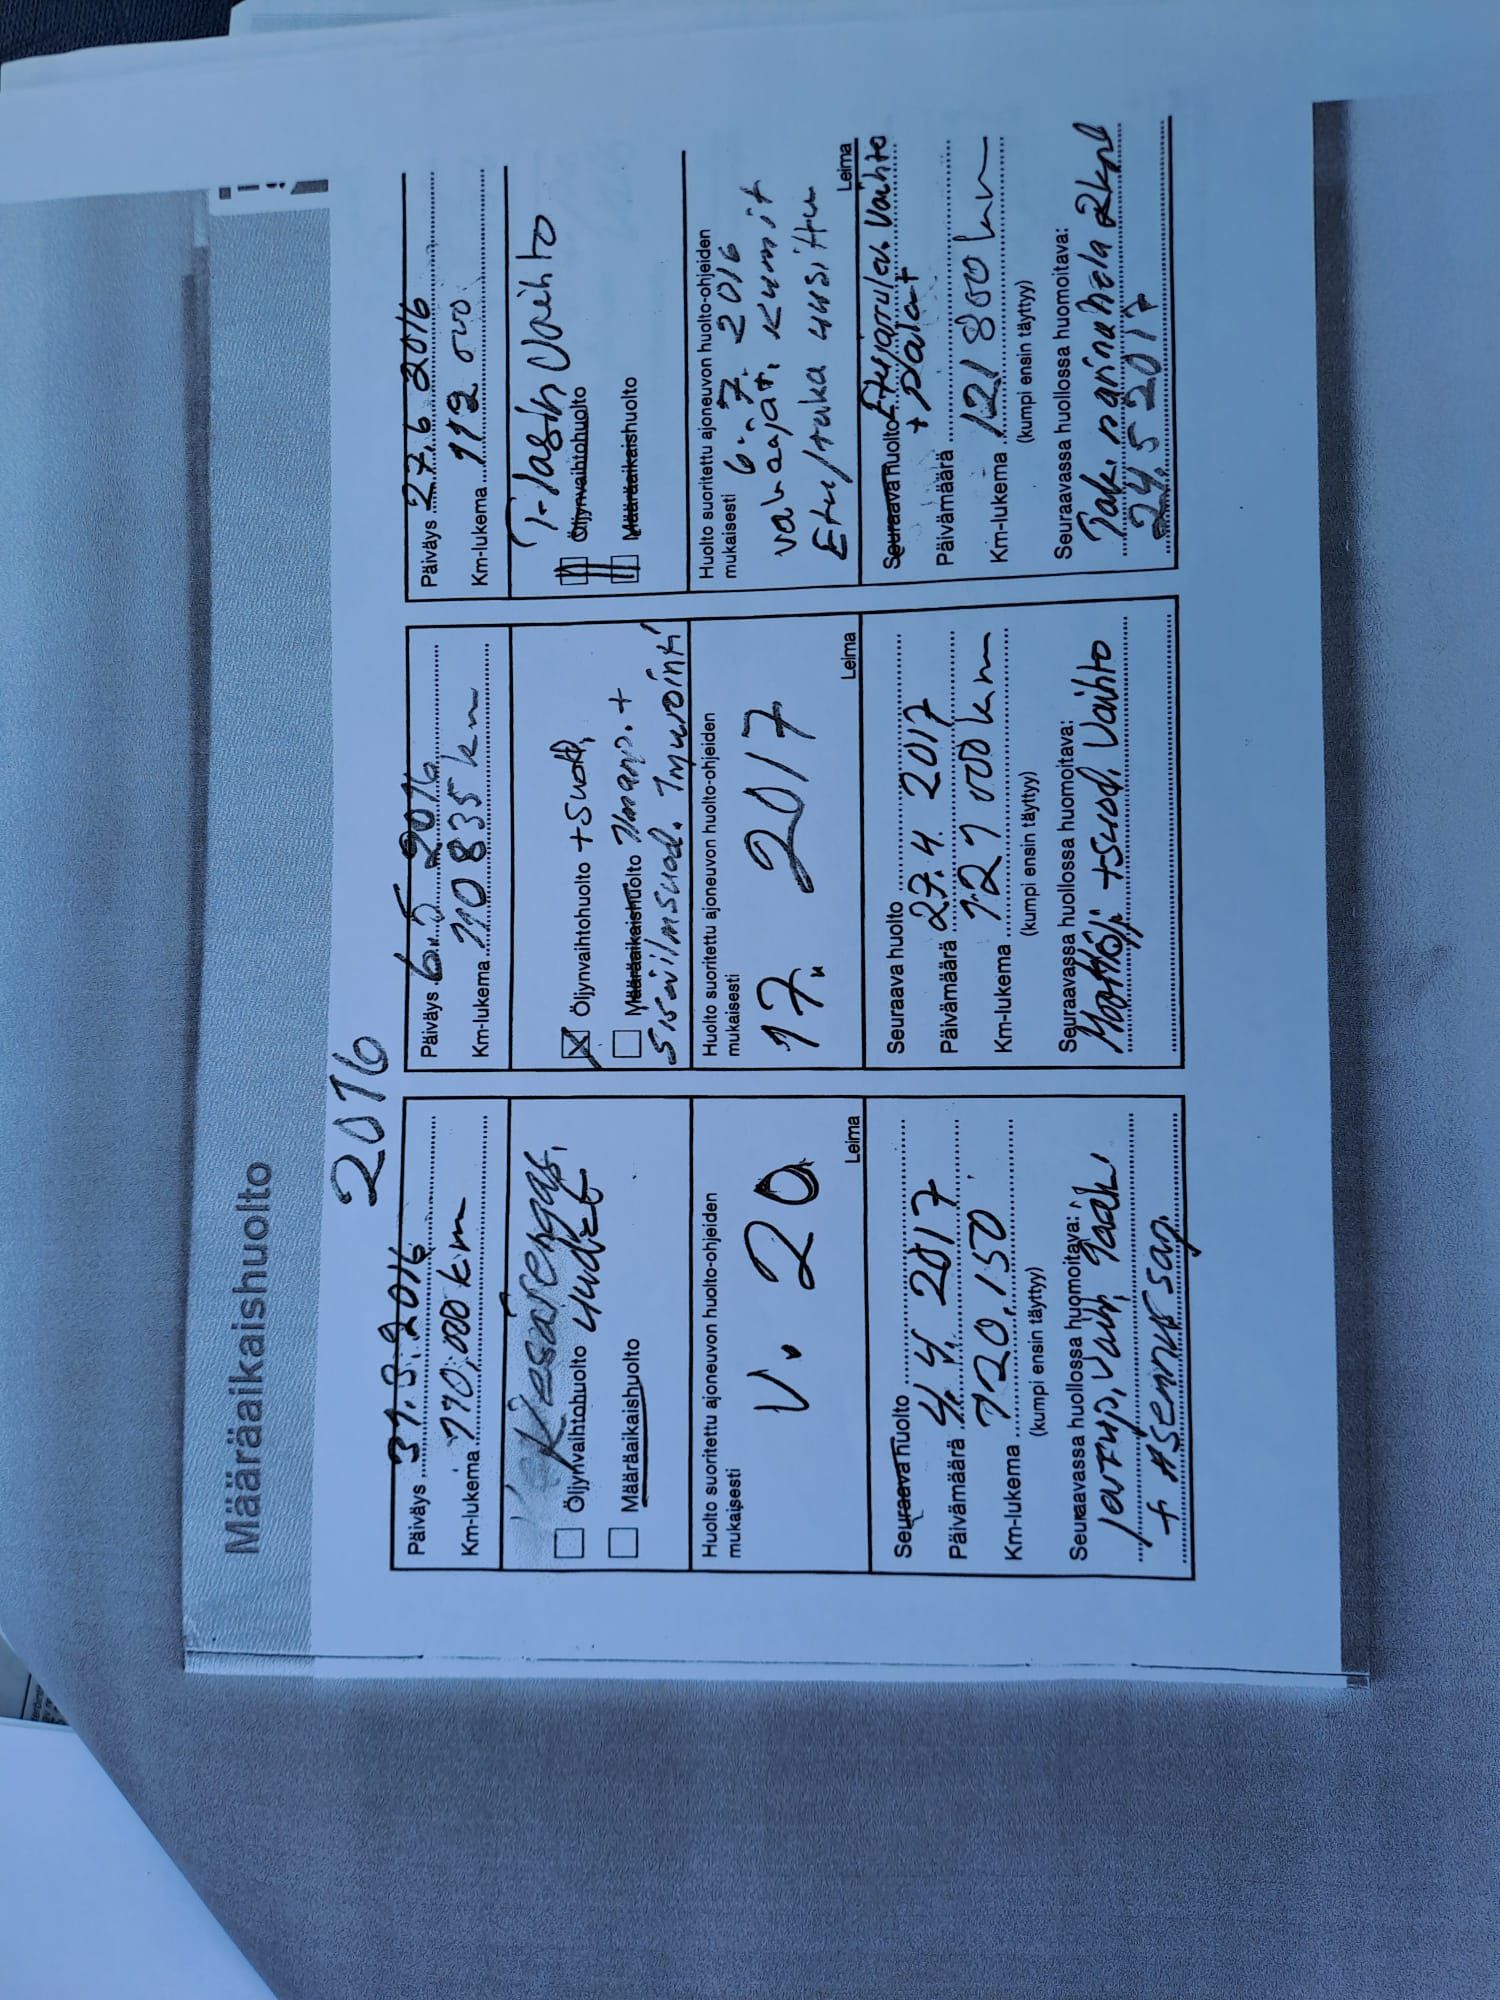 Määräaikaishuolto
2016
Päiväys 31.3.2016
Km-lukema 110,000 km
Kesärengas,
Öljynvaihtohuolto uudet
Määräaikaishuolto
Huolto suoritettu ajoneuvon huolto-ohjeiden
mukaisesti
V. 20
Leima
Seuraava huolto
Päivämäärä 4.4.2017
Km-lukema 120,150
(kumpi ensin täyttyy)
Seuraavassa huollossa huomoitava:
+ Asennus sap.
Päiväys 6.5 2016
Km-lukema 110 835 km
Öljynvaihtohuolto + suod,
Määräaikaishuolto Ilmanp. +
Sisäilmsuod. Imurointi
Huolto suoritettu ajoneuvon huolto-ohjeiden
mukaisesti
17. 2017
Leima
Seuraava huolto
Päivämäärä 27.4 2017
Km-lukema 121 000 km
(kumpi ensin täyttyy)
Seuraavassa huollossa huomoitava:
Moottöljy +suod, Vaihto
Päiväys 27.6 2016
Km-lukema 112 000
T-lasin Vaihto
Öljynvaihtohuolto
Määräaikaishuolto
Huolto suoritettu ajoneuvon huolto-ohjeiden
mukaisesti 6.7. 2016
Vakaajat, kumit
Etu/taka uusittu
Leima
Seuraava huolto Etujarrulev. Vaihto
+ palat
Päivämäärä
Km-lukema 121 800 km
(kumpi ensin täyttyy)
Seuraavassa huollossa huomoitava:
Tak, 2kpl
24.5 2017